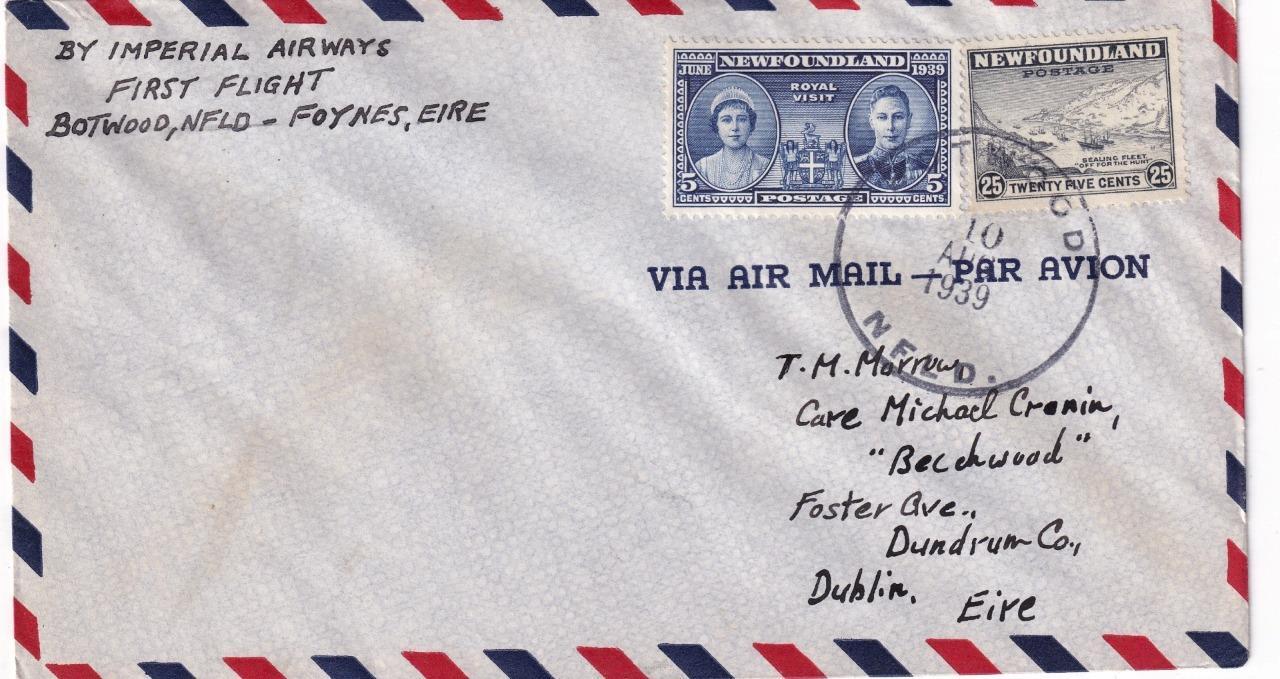 BY IMPERIAL AIRWAYS
FIRST FLIGHT
BOTWOOD, NFLD - FOYNES, EIRE
JUNE NEWFOUNDLAND 1939
ROYAL
VISIT
5 5
CENTS POSTAGE CENTS
NEWFOUNDLAND
POSTAGE
SEALING FLEET,
"OFF FOR THE HUNT"
25 TWENTY FIVE CENTS 25
10
AUG
1939
NFLD.
VIA AIR MAIL — PAR AVION
T. M. Morrow,
Care Michael Cronin,
"Beechwood"
Foster Ave.,
Dundrum Co.,
Dublin.
Eire